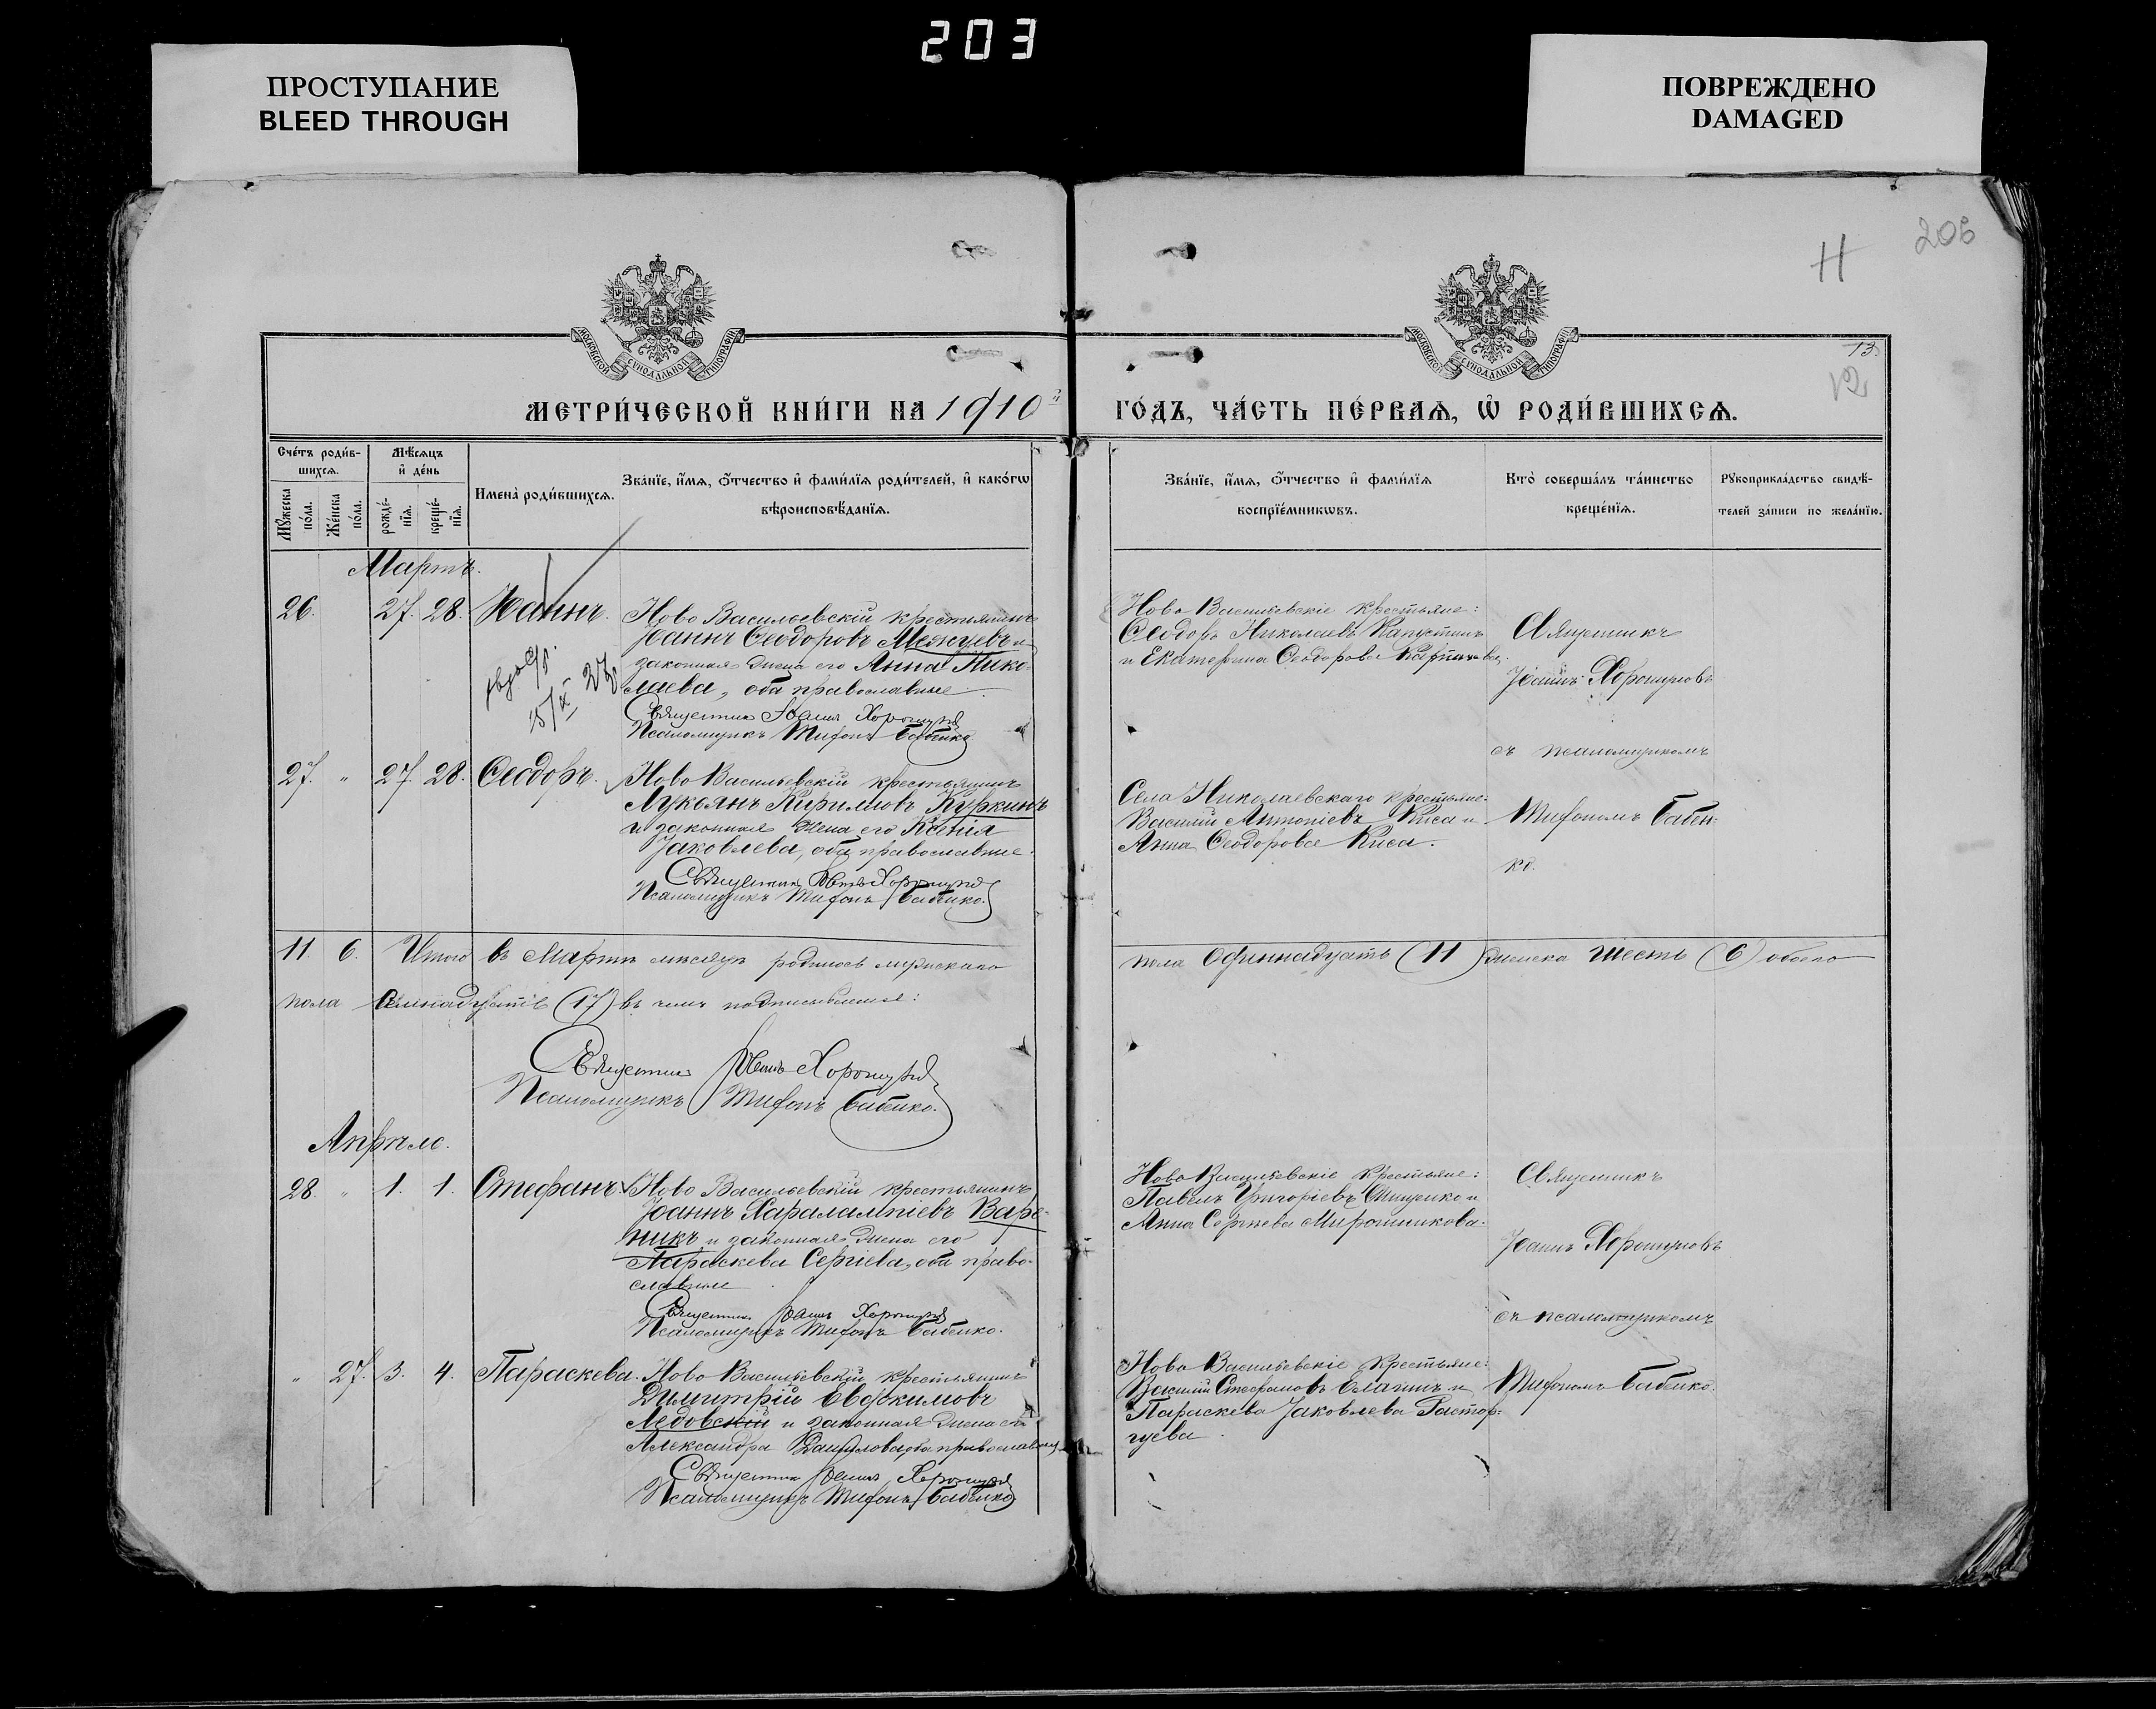 203
ПРОСТУПАНИЕ
BLEED THROUGH
ПОВРЕЖДЕНО
DAMAGED
206
Н
13.
12
МОСКОВСКОЙ СѴНОДАЛЬНОЙ ТИПОГРАФІИ
МОСКОВСКОЙ СѴНОДАЛЬНОЙ ТИПОГРАФІИ
МЕТРИ́ЧЕСКОЙ КНИ́ГИ НА 1910й
ГО́ДЪ, ЧА́СТЬ ПЕ́РВАѦ, Ѡ҆ РОДИ́ВШИХСѦ.
Сче́тъ роди́в-
шихсѧ.
Мꙋ́жеска по́ла.
Же́нска по́ла.
Мѣ́сѧцъ
и҆ де́нь
рожде́-
нїѧ.
креще́-
нїѧ.
Имена̀ роди́вшихсѧ.
Зва́нїе, и҆́мѧ, ѻ҆́тчество и҆ фами́лїѧ роди́телей, и҆ како́гѡ
вѣроисповѣ́данїѧ.
Зва́нїе, и҆́мѧ, ѻ҆́тчество и҆ фами́лїѧ
воспрїе́мникѡвъ.
Кто̀ соверша́лъ та́инство
креще́нїѧ.
Рꙋкоприкла́дство свидѣ́-
телей за́писи по жела́нїю.
Мартъ.
26. 27. 28. Іоаннъ.
Ново Васильевскій крестьянинъ
Іоаннъ Ѳеодоровъ Межуевъ и
законная жена его Анна Нико-
лаева, оба православные
Священникъ Іоаннъ Хорошуновъ
Псаломщикъ Тифонъ Бабенко
Ново Васильевскіе крестьяне:
Ѳеодоръ Николаевъ Капустинъ
и Екатерина Ѳеодорова
Священникъ
Іоаннъ Хорошуновъ
съ псаломщикомъ
27. " 27. 28. Ѳеодоръ.
Ново Васильевскій крестьянинъ
Лукьянъ Кирилловъ Куркинъ
и законная жена его Ксенія
Іаковлева, оба православные.
Священникъ Іоаннъ Хорошуновъ
Псаломщикъ Тифонъ Бабенко.
Села Николаевскаго крестьяне:
Василій Антоніевъ Киса и
Анна Ѳеодорова Киса.
Тифономъ Бабен-
ко.
11. 6. Итого въ Мартѣ мѣсяцѣ родилось мужскаго
пола Одиннадцать (11) женска шесть (6) обоего
пола Семнадцать (17) въ чемъ подписываемся:
Священникъ Іоаннъ Хорошуновъ
Псаломщикъ Тифонъ Бабенко.
Апрѣль.
28. " 1. 1. Стефанъ.
Ново Васильевскій крестьянинъ
Іоаннъ Харалампіевъ Варе-
никъ и законная жена его
Параскева Сергіева, оба право-
славные
Священникъ Іоаннъ Хорошуновъ
Псаломщикъ Тифонъ Бабенко.
Ново Васильевскіе крестьяне:
Павелъ Григоріевъ и
Анна Сергіева Мирошникова.
Священникъ
Іоаннъ Хорошуновъ
съ псаломщикомъ
" 27. 3. 4. Параскева.
Ново Васильевскій крестьянинъ
Димитрій Евфкимовъ
Ледовскій и законная жена его
Александра Данилова, оба православные
Священникъ Іоаннъ Хорошуновъ
Псаломщикъ Тифонъ Бабенко
Ново Васильевскіе крестьяне:
Василій Стефановъ Елагинъ и
Параскева Іаковлева Растор-
гуева.
Тифономъ Бабенко.